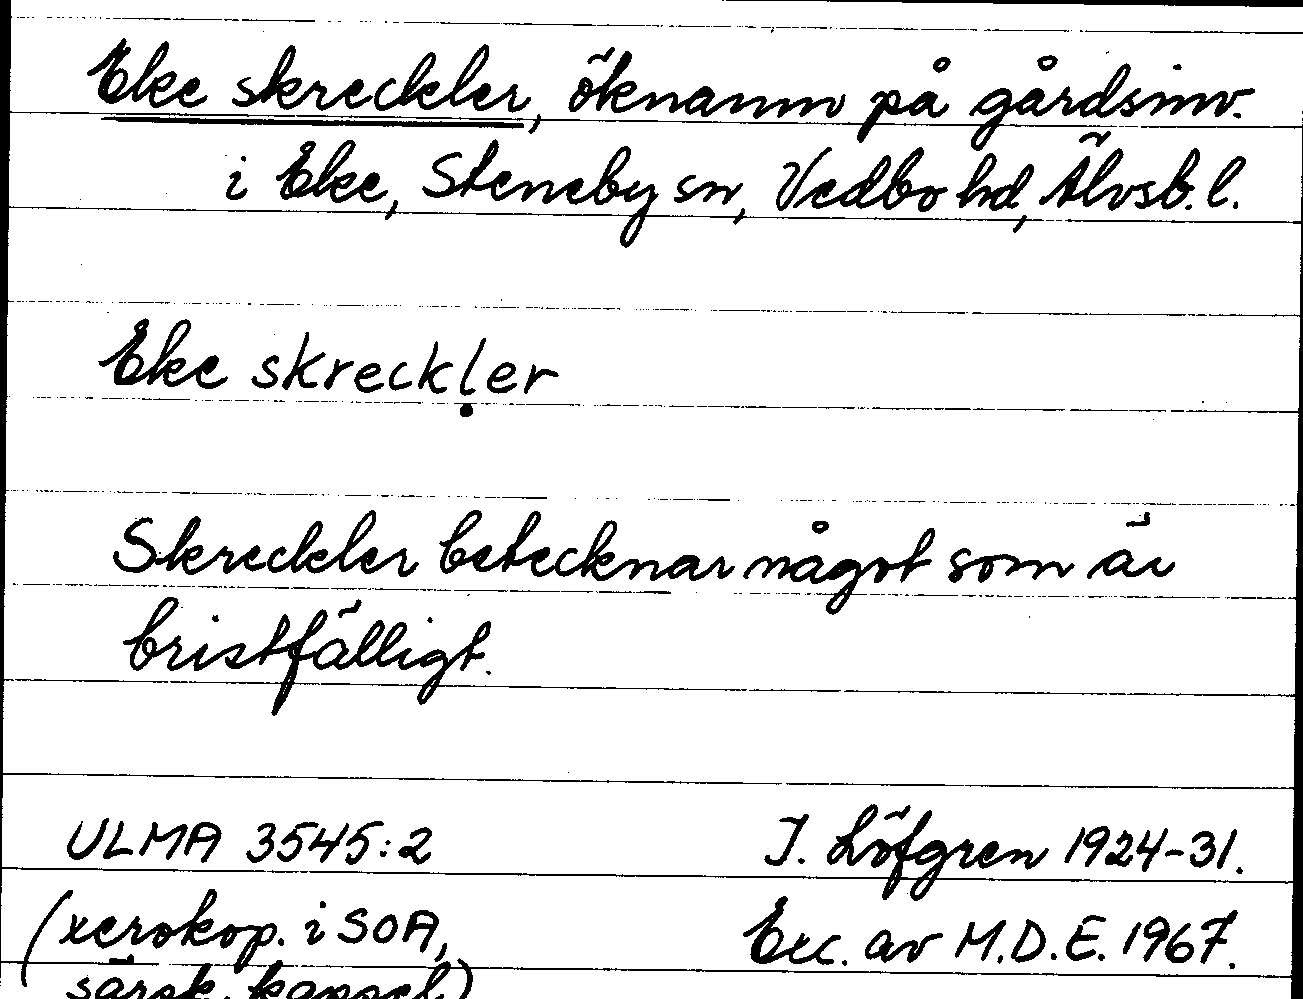 Eke skreckler, öknamn på gårdsinv.
i Eke, Steneby sn, Vedbo hd, Älvsb. l.
Eke skreckḷer
Skreckler betecknar något som är
bristfälligt.
ULMA 3545:2
J. Löfgren 1924-31.
(xerokop. i SOA,
Exc. av M.D.E. 1967.
särsk. kapsel)